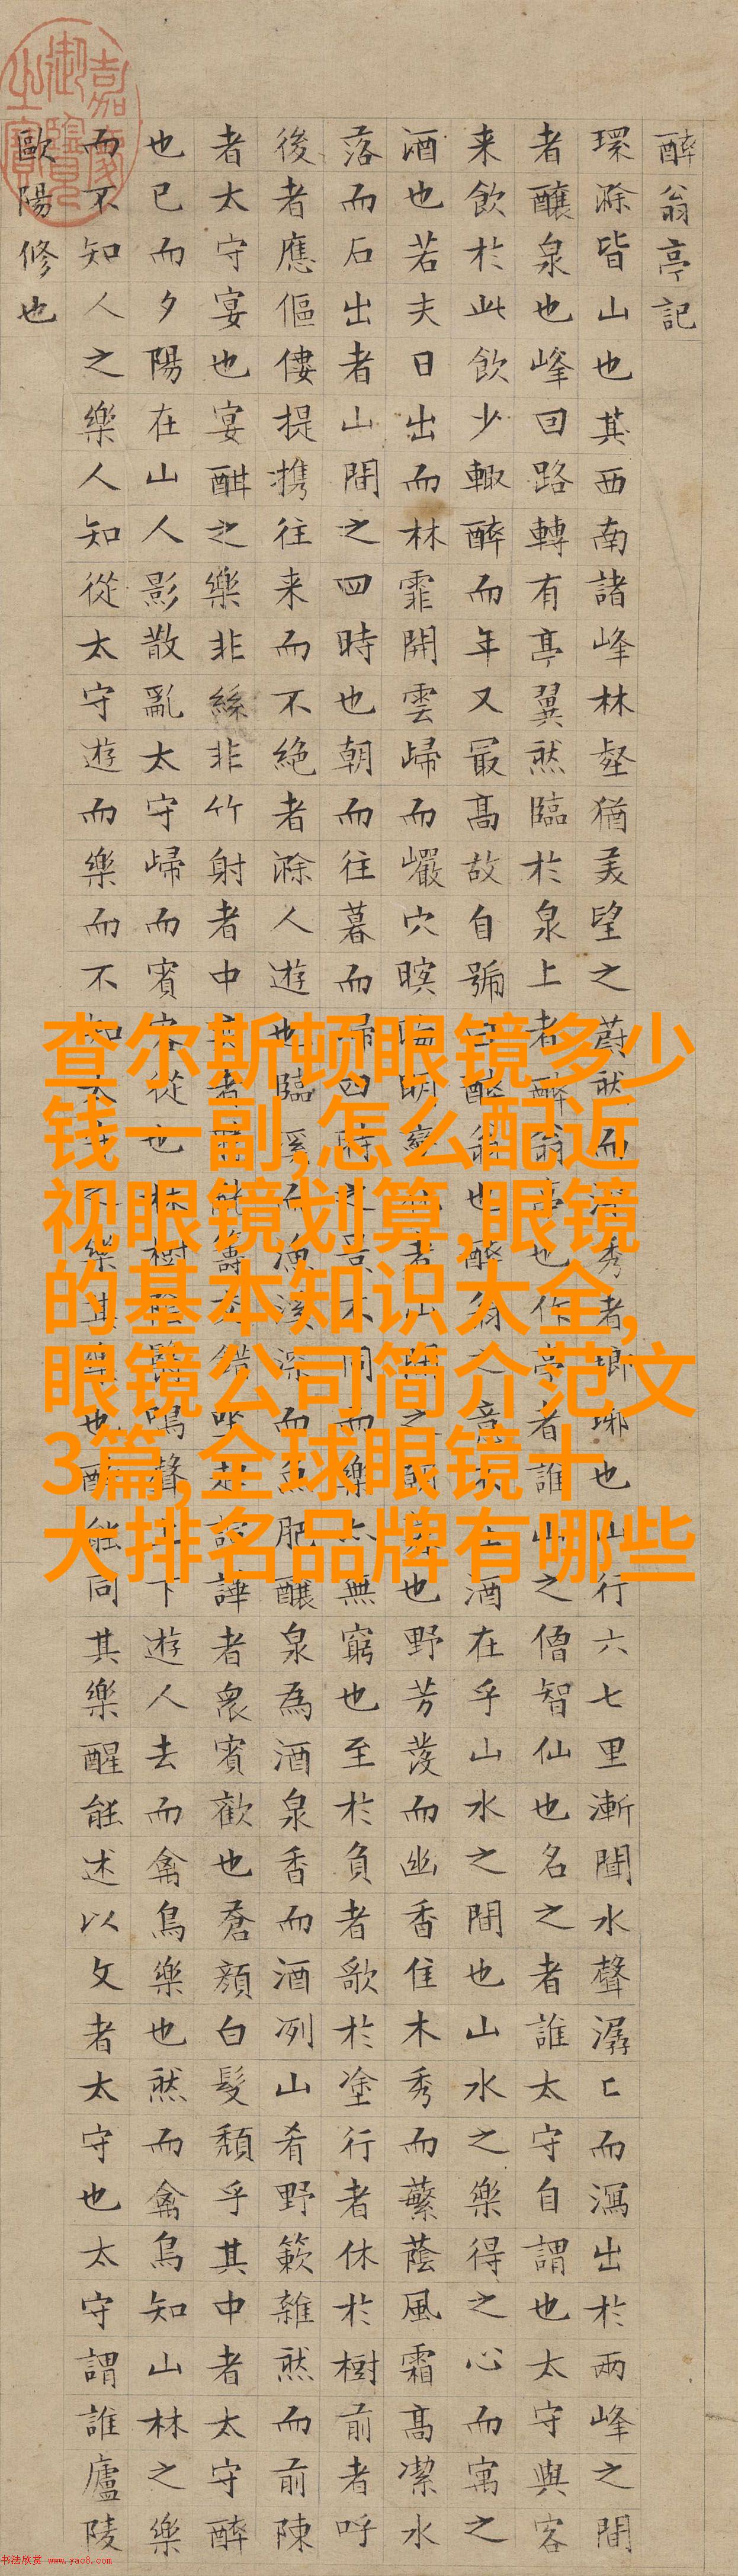 醉翁亭記
環滁皆山也其西南諸峰林壑猶美望之蔚然而深秀者瑯琊也山行六七里漸聞水聲潺〻而瀉出於兩峰之間
者釀泉也峰回路轉有亭翼然臨於泉上者醉翁亭也作亭者誰山之僧智仙也名之者誰太守自謂也太守與客
来飲於此飲少輙醉而年又最高故自號曰醉翁也醉翁之意不在酒在乎山水之間也山水之樂得之心而寓之
酒也若夫日出而林霏開雲歸而巖穴暝晦明變化者山間之朝暮也野芳發而幽香佳木秀而蘩蔭風霜高潔水
落而石出者山間之四時也朝而往暮而歸四時之景不同而樂亦無窮也至於負者歌於塗行者休於樹前者呼
後者應傴僂提携往来而不絶者滁人遊也臨溪而漁溪深而魚肥釀泉為酒泉香而酒冽山肴野簌雜然而前陳
者太守宴也宴酣之樂非絲非竹射者中奕者勝觥籌交錯坐起諠譁者衆賓歡也蒼顏白髮頹乎其中者太守醉
也已而夕陽在山人影散亂太守歸而賓客從也林樹陰翳鳴聲上下遊人去而禽鳥樂也然而禽鳥知山林之樂
而不知人之樂人知從太守遊而樂而不知太守之樂其樂也醉能同其樂醒能述以文者太守也太守謂誰廬陵
歐陽修也
嘉慶御覽之寶
查尔斯顿眼镜多少
钱一副,怎么配近
视眼镜划算,眼镜
的基本知识大全,
眼镜公司简介范文
3篇,全球眼镜十
大排名品牌有哪些
书法欣赏 www.yac8.com